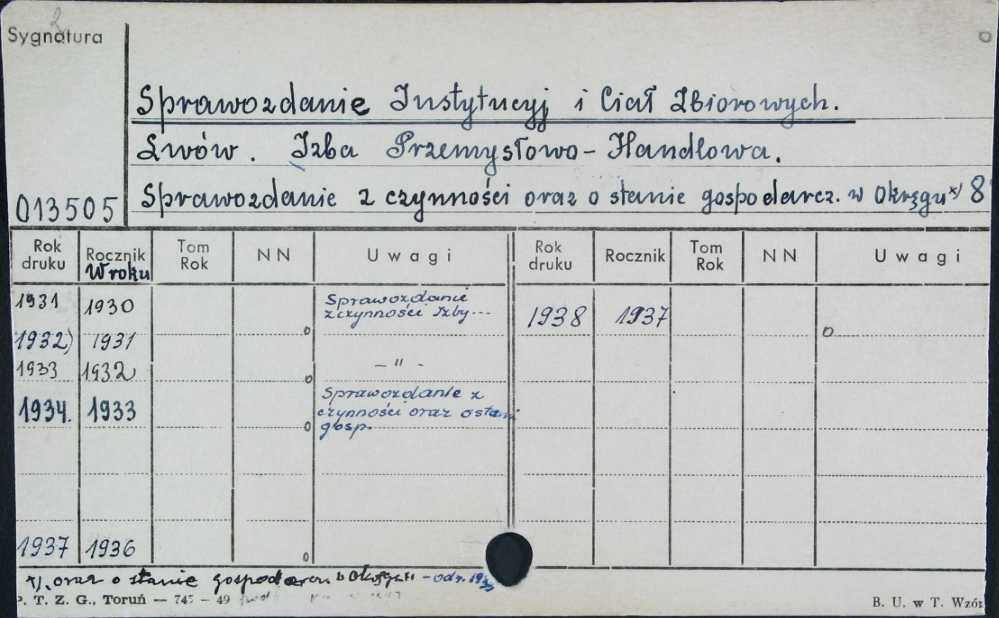 Sygnatura
Sprawozdanie Instytucyj i Ciał Zbiorowych.
Lwów. Izba Przemysłowo-Handlowa.
013505 Sprawozdanie z czynności oraz o stanie gospodarcz. w Okręgu x) 8
Rok druku Rocznik W roku Tom Rok NN Uwagi Rok druku Rocznik Tom Rok NN Uwagi
1931 1930 Sprawozdanie z czynności Izby... 1938 1937
1932) 1931
1933 1932 — " -
1934. 1933 Sprawozdanie z czynności oraz o stani gosp.
1937 1936
x), oraz o stanie gospodarcz. w Okręgu - od r.
P. T. Z. G., Toruń — 745 - 49
B. U. w T. Wzór